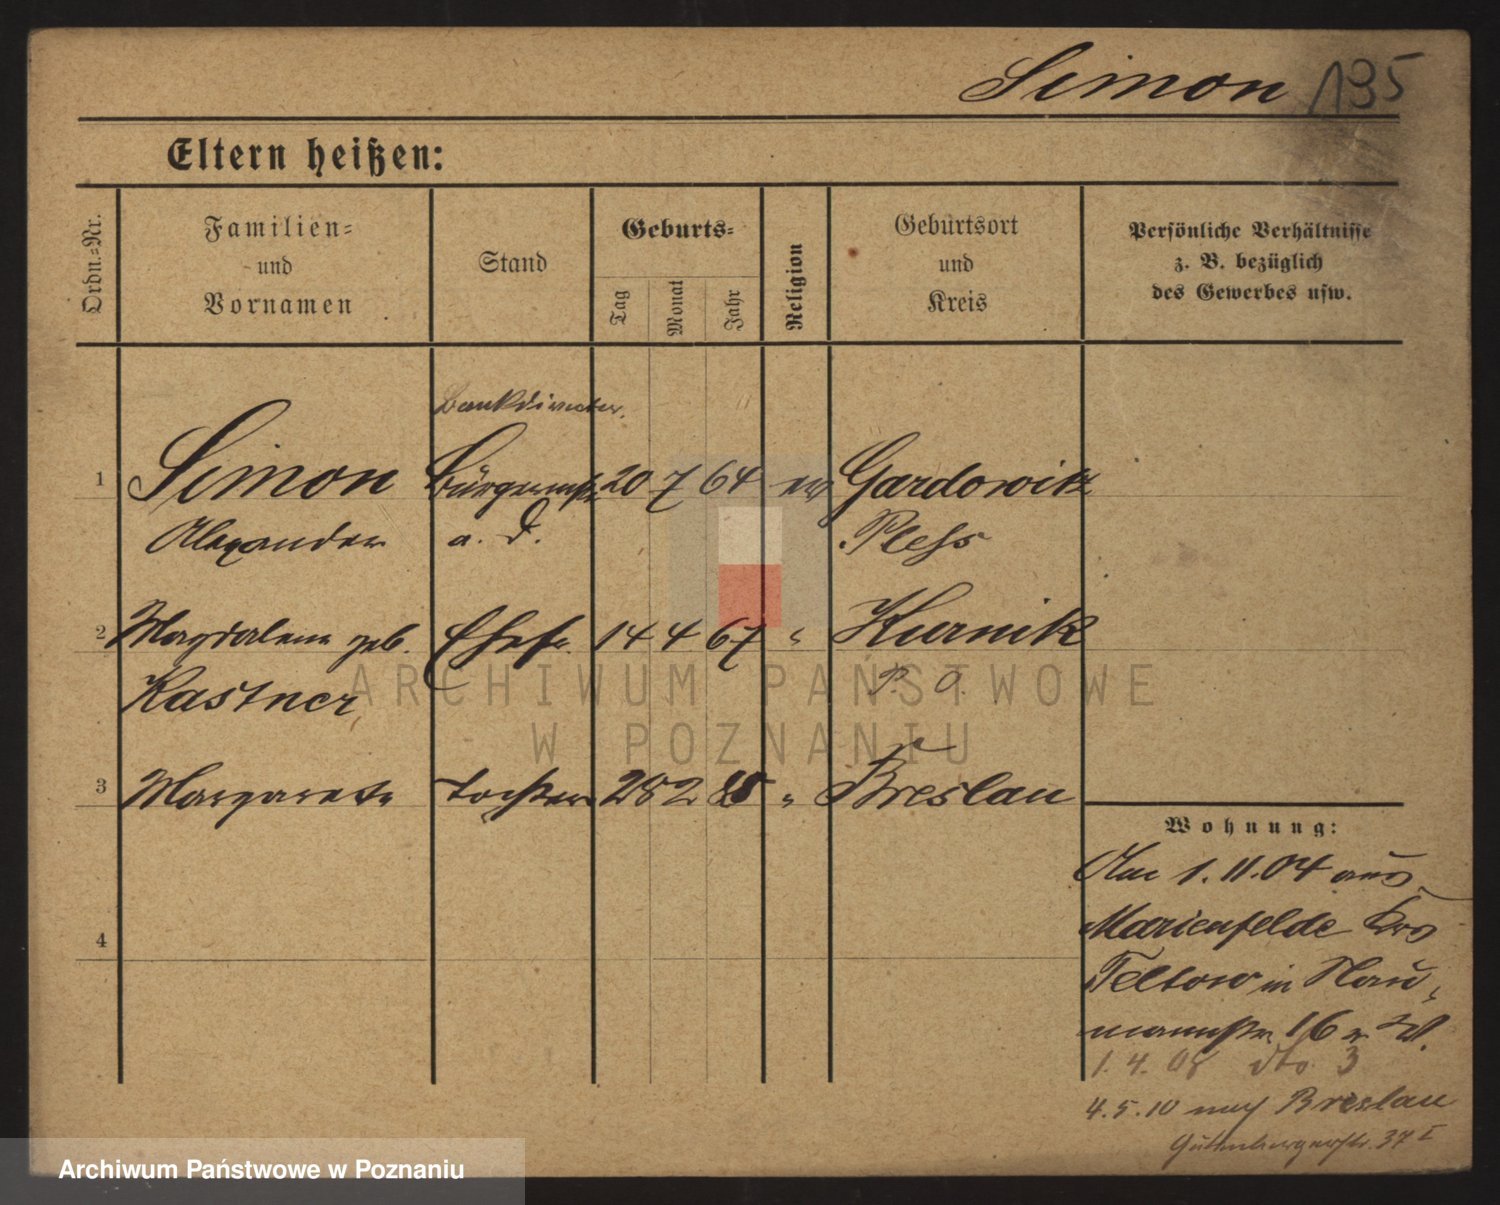 Simon 135
Eltern heißen:
Ordn.-Nr.
Familien-
und
Vornamen
Stand
Geburts-
Tag
Monat
Jahr
Religion
Geburtsort
und
Kreis
Persönliche Verhältnisse
z. B. bezüglich
des Gewerbes usw.
Bankdirector.
1 Simon Bürgermstr 20 7 64 ev Gardowitz
Alexander a. D. Pless
2 Magdalena geb. Ehefr. 14 4 67 " Kurnik
Kastner P. O.
3 Margarete Tochter 28 2 " Breslau
4
Wohnung:
Am 1.11.04 aus
Marienfelde Krs
Teltow in Nau-
mannstr 16 W.
1.4.08 dto. 3
4.5.10 nach Breslau
Gutenbergerstr. 37 I
ARCHIWUM PAŃSTWOWE
W POZNANIU
Archiwum Państwowe w Poznaniu